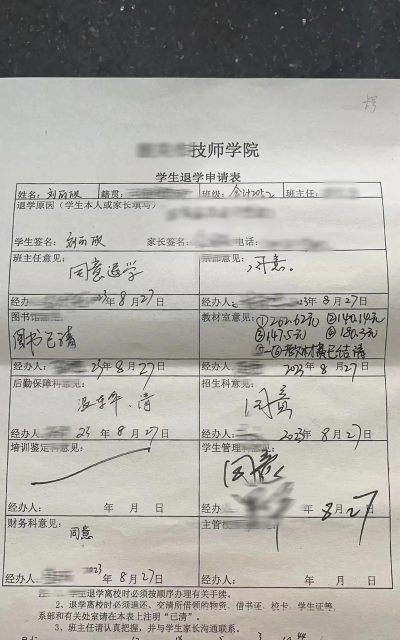 技师学院
学生退学申请表
姓名: 刘丽欣 籍贯: 班级: 会计2052 班主任:
退学原因（学生本人或家长填写）
学生签名: 刘丽欣 家长签名: 电话:
班主任意见: 系部意见:
同意退学 同意。
经办 23年8月27日 经办人: 23年8月27日
图书馆意见: 教材室意见:
图书已清 ①202.62元 ②140.14元
③147.5元 ④180.3元
①-④教材费已结清
经办人: 23年8月27日 经办人 2023年8月27日
后勤保障科意见: 招生科意见:
清 同意
经办人 23年8月27日 经办人 2023年8月27日
培训鉴定科意见: 学生管理科意见:
同意
经办人: 年 月 日 8月27
财务科意见: 主管校
同意
经办人: 23年8月27日 经办人: 年 月 日
学生离校时必须按顺序办理有关手续。
2、退学离校时必须退还、交清所借领的物资、借书证、校卡、学生证等,
系部和有关处室请在本表上注明“已清”。
3、班主任请认真把握，并与学生家长沟通联系。